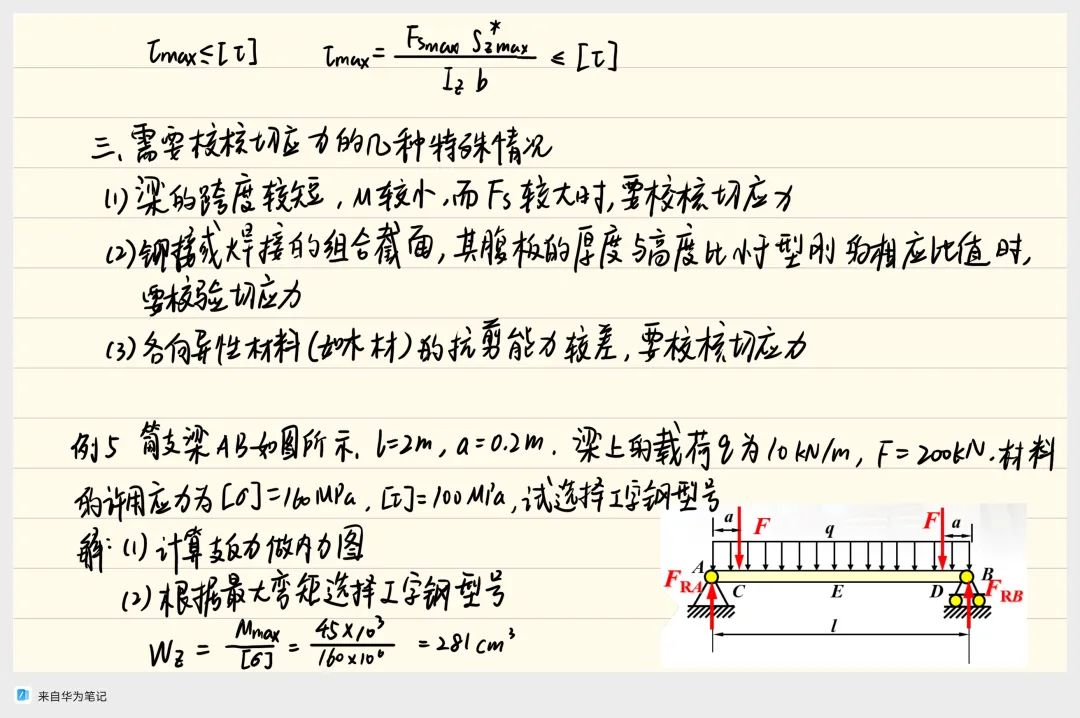 τmax≤[τ] τmax= FSmax S*zmax / Iz b ≤ [τ]
三、需要校核切应力的几种特殊情况
(1) 梁的跨度较短, M较小,而Fs较大时,要校核切应力
(2) 铆接或焊接的组合截面,其腹板的厚度与高度比小于型刚的相应比值时,
要校验切应力
(3) 各向异性材料(如木材)的抗剪能力较差,要校核切应力
例5 简支梁AB如图所示. l=2m, a=0.2m. 梁上的载荷q为10kN/m, F=200kN.材料
的许用应力为[σ]=160MPa, [τ]=100MPa,试选择工字钢型号
解: (1) 计算支反力做内力图
(2) 根据最大弯矩选择工字钢型号
Wz = Mmax / [σ] = 45×10³ / 160×10⁶ = 281cm³
a F q F a
A B
FRA C E D FRB
l
来自华为笔记